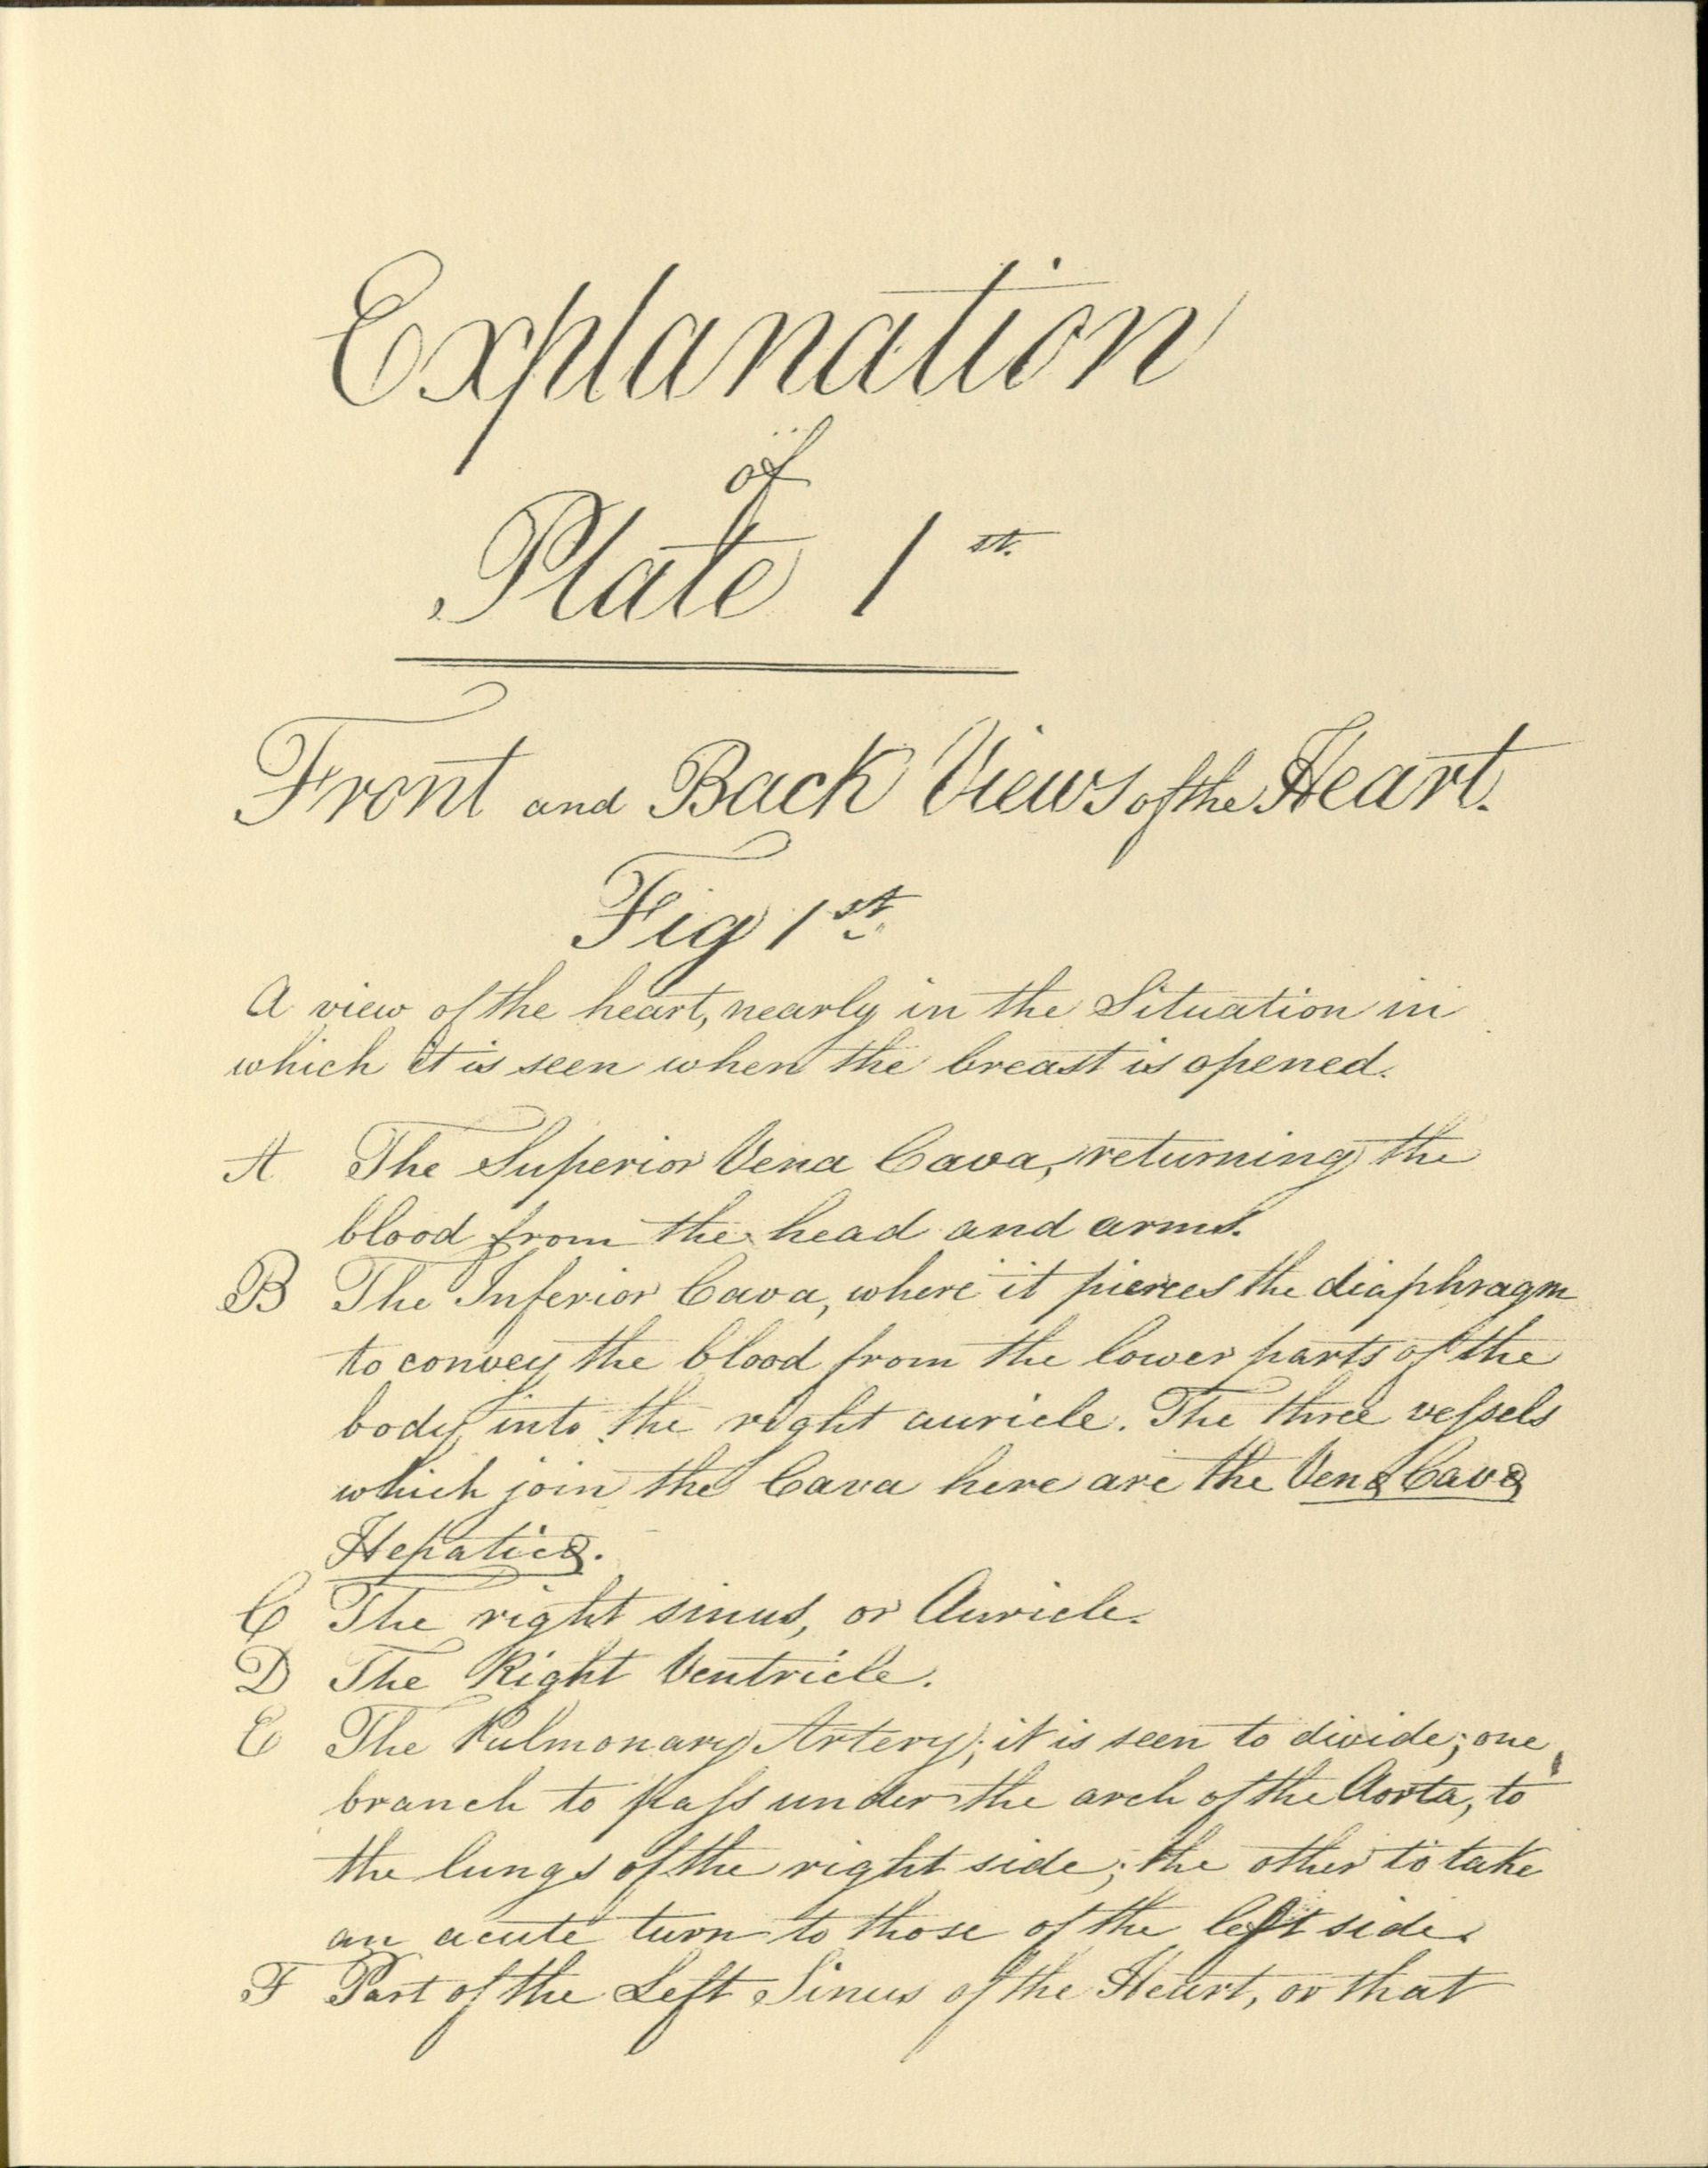 Explanation
of
Plate 1st.
Front and Back Views of the Heart.
Fig 1st.
A view of the heart, nearly in the Situation in
which it is seen when the breast is opened.
A The Superior Vena Cava, returning the
blood from the head and arms.
B The Inferior Cava, where it pierces the diaphragm
to convey the blood from the lower parts of the
body into the right auricle. The three veſsels
which join the Cava here are the Venæ Cavæ
Hepaticæ.
C The right sinus, or Auricle.
D The Right Ventricle.
E The Pulmonary Artery; it is seen to divide; one
branch to paſs under the arch of the Aorta, to
the lungs of the right side; the other to take
an acute turn to those of the left side.
F Part of the Left Sinus of the Heart, or that